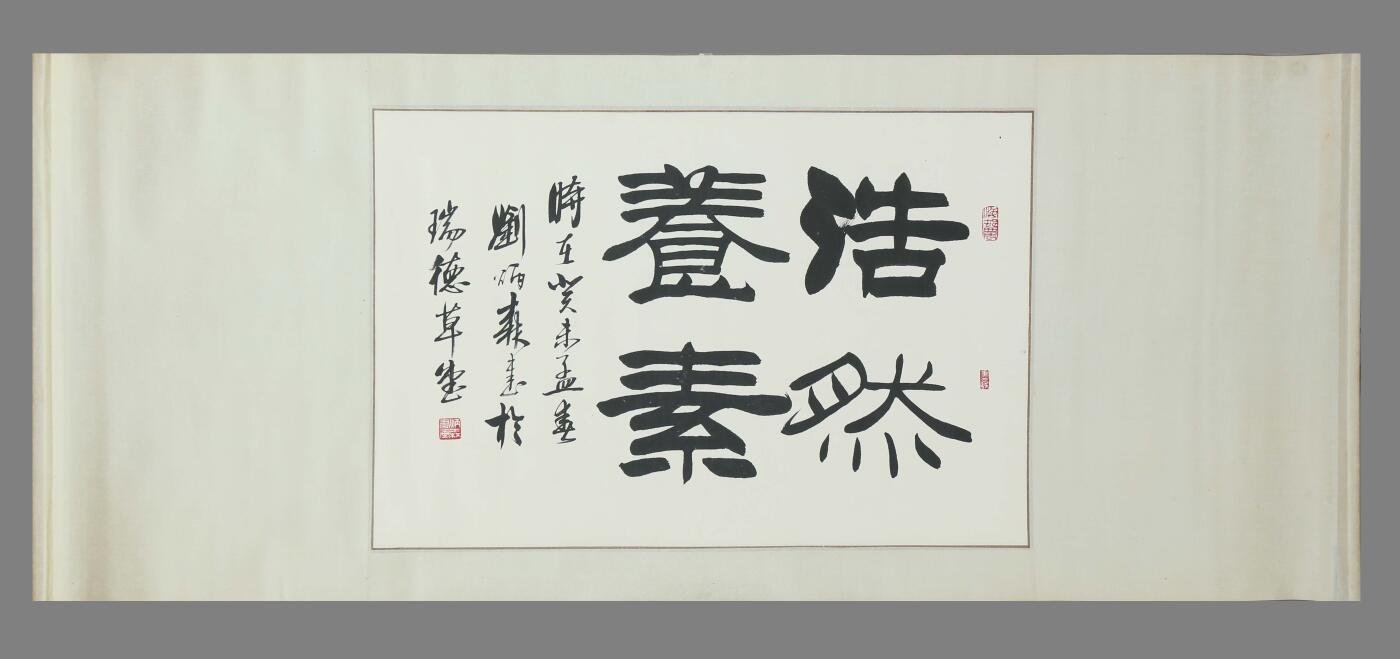 浩然
養素
時在癸未孟春
劉炳森書於
瑞德草堂